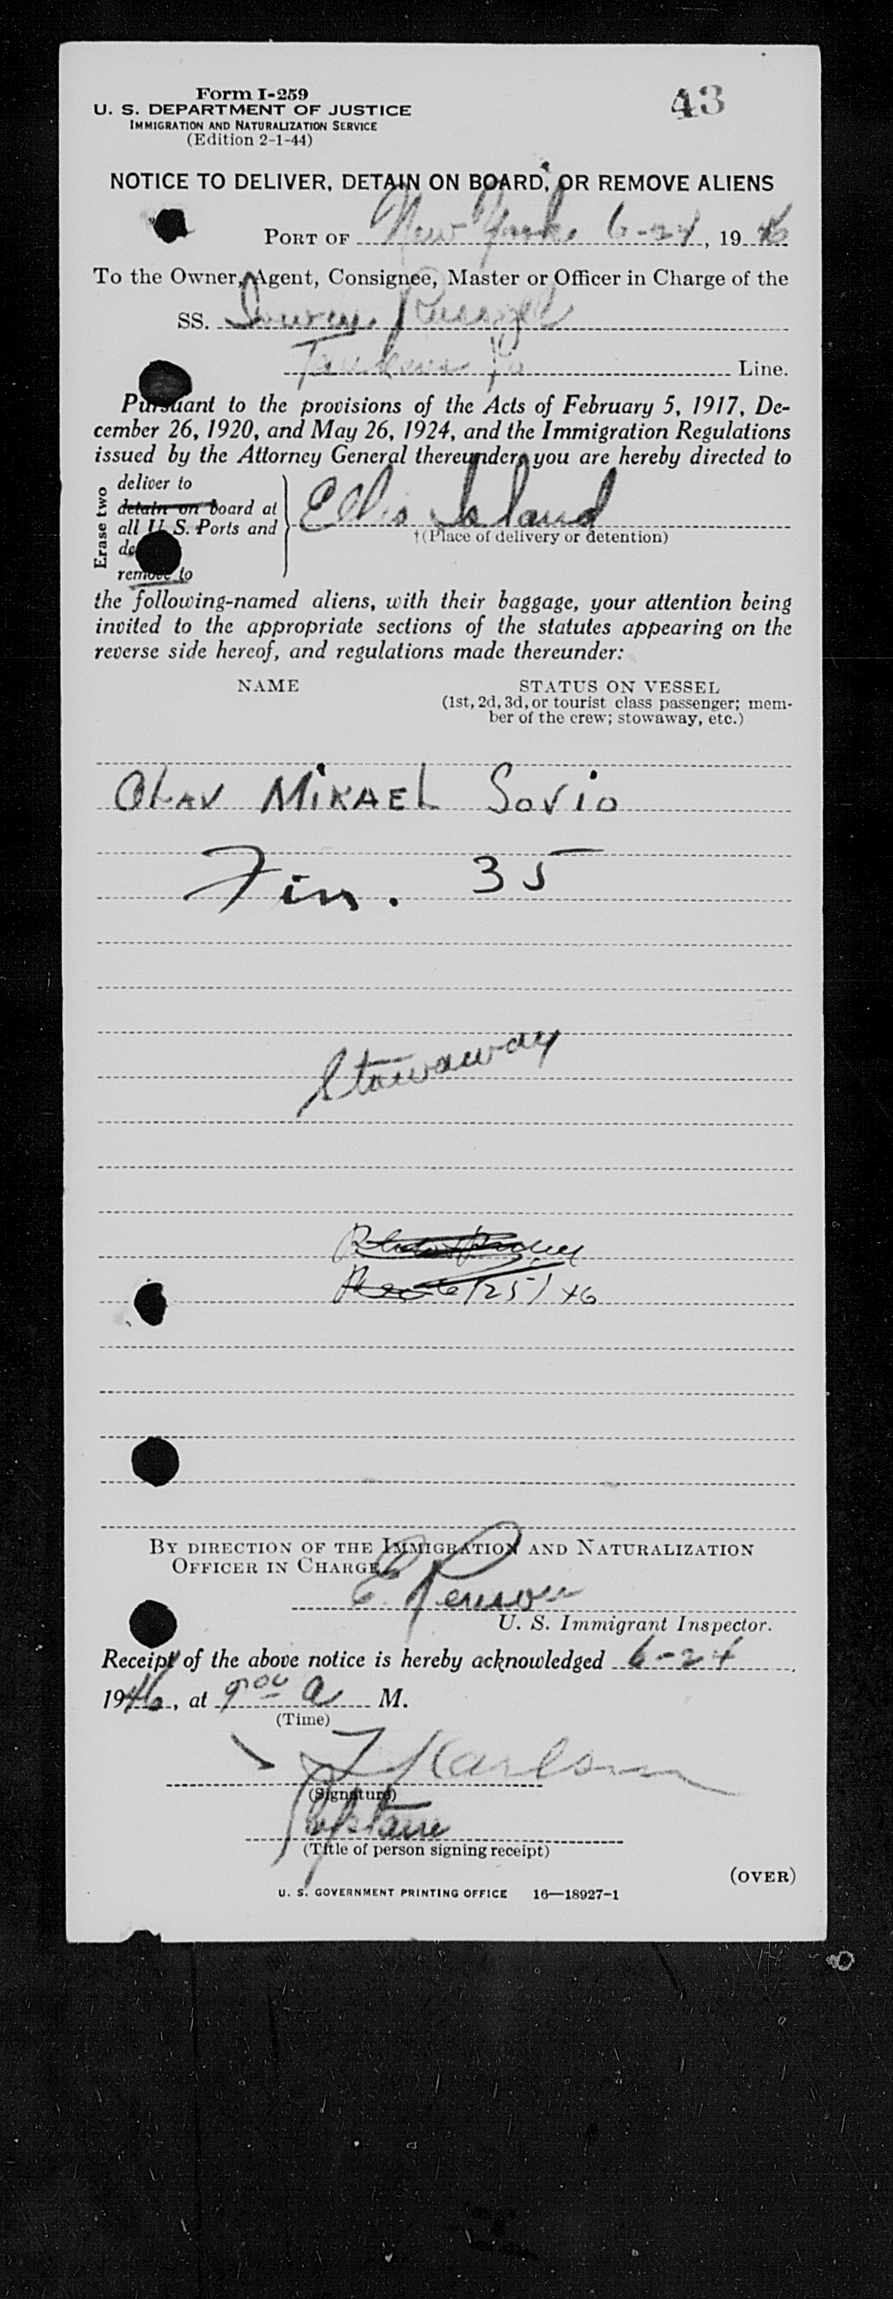 Form I-259
43
U. S. DEPARTMENT OF JUSTICE
IMMIGRATION AND NATURALIZATION SERVICE
(Edition 2-1-44)
NOTICE TO DELIVER, DETAIN ON BOARD, OR REMOVE ALIENS
PORT OF New York, 6-24, 1946
To the Owner, Agent, Consignee, Master or Officer in Charge of the
SS. Russell
Line.
Pursuant to the provisions of the Acts of February 5, 1917, De-
cember 26, 1920, and May 26, 1924, and the Immigration Regulations
issued by the Attorney General thereunder, you are hereby directed to
Erase two
deliver to
detain on board at
all U. S. Ports and
remove to
Ellis Island
†(Place of delivery or detention)
the following-named aliens, with their baggage, your attention being
invited to the appropriate sections of the statutes appearing on the
reverse side hereof, and regulations made thereunder:
NAME
STATUS ON VESSEL
(1st, 2d, 3d, or tourist class passenger; mem-
ber of the crew; stowaway, etc.)
OLAV MIKAEL SOVIO
Fin. 35
Stowaway
6/25/46
BY DIRECTION OF THE IMMIGRATION AND NATURALIZATION
OFFICER IN CHARGE.
E.
U. S. Immigrant Inspector.
Receipt of the above notice is hereby acknowledged 6-24,
1946, at 9 00 a M.
(Time)
Karlson
(Signature)
(Title of person signing receipt)
(OVER)
U. S. GOVERNMENT PRINTING OFFICE 16—18927-1